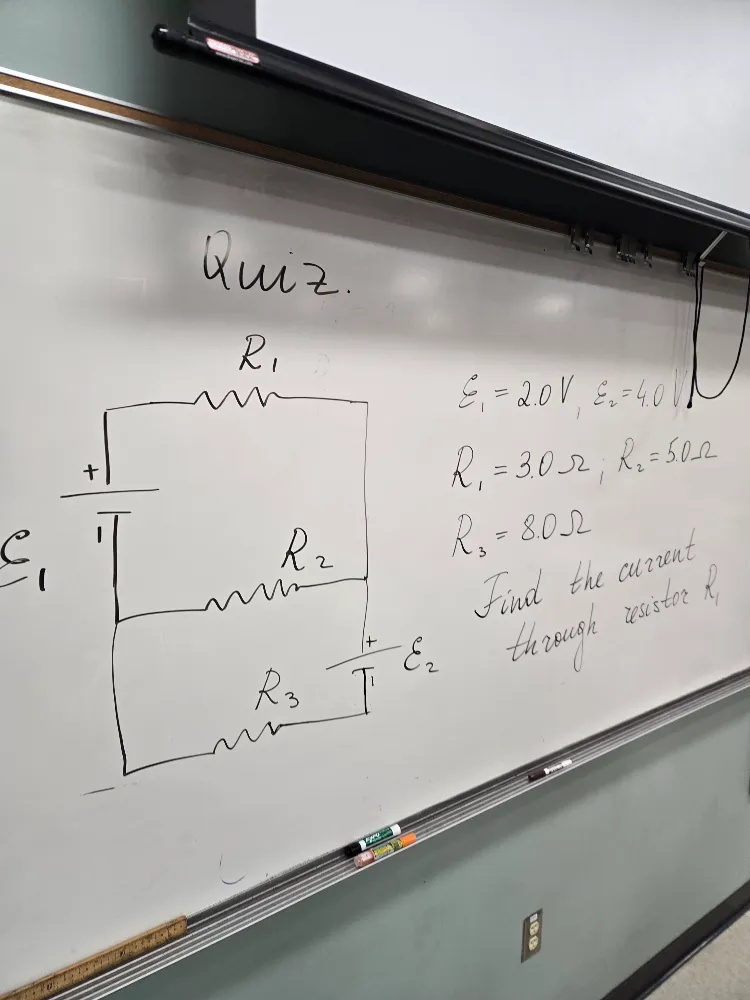 Quiz.
R₁
+
−
ℰ₁
R₂
+
−
ℰ₂
R₃
ℰ₁ = 2.0 V, ℰ₂ = 4.0 V
R₁ = 3.0 Ω ; R₂ = 5.0 Ω
R₃ = 8.0 Ω
Find the current
through resistor R₁